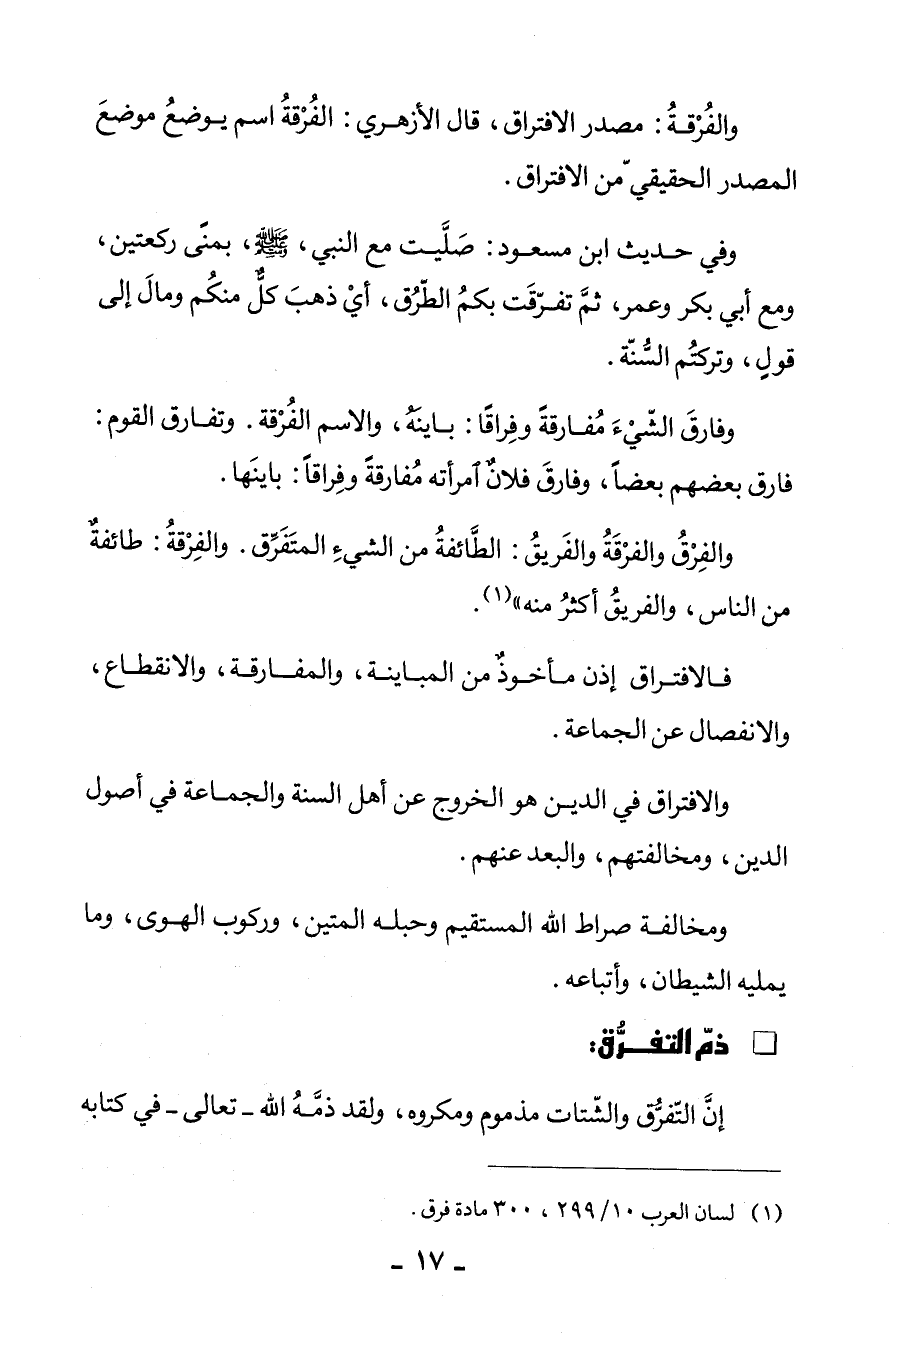 والفُرْقـةُ : مصدر الافتراق ، قال الأزهـري : الفُرْقةُ اسم يـوضعُ موضعَ
المصدر الحقيقيّ من الافتراق .
وفي حـديث ابن مسعـود : صَلَّيـت مع النبي ، ﷺ ، بمنًى ركعتين ،
ومع أبي بكر وعمر ، ثمَّ تفـرّقَت بكمُ الطّرُق ، أيْ ذهبَ كلٌّ منكُم ومالَ إلى
قولٍ ، وتركتُم السُّنّة .
وفارقَ الشّيْءَ مُفـارقةً وفِراقًا : بـاينَهُ ، والاسم الفُرْقة . وتفـارق القوم :
فارق بعضهم بعضاً ، وفارقَ فلانٌ ٱمرأته مُفارقةً وفِراقاً : باينَها .
والفِرْقُ والفرْقَةُ والفَريقُ : الطَّائفةُ من الشيءِ المتَفَرِّق . والفِرْقةُ : طائفةٌ
من الناس ، والفريقُ أكثرُ منه»(١) .
فـالافتـراق إذن مـأخـوذٌ من المبـاينـة ، والمفـارقـة ، والانقطـاع ،
والانفصال عن الجماعة .
والافتراق في الديـن هو الخروج عن أهل السنة والجمـاعة في أصول
الدين ، ومخالفتهم ، والبعد عنهم .
ومخالفـة صراط الله المستقيم وحبلـه المتين ، وركوب الهـوى ، وما
يمليه الشيطان ، وأتباعه .
□ ذمّ التفـرُّق :
إنَّ التّفرُّق والشّتات مذموم ومكروه ، ولقد ذمَّـهُ الله ـ تعالى ـ في كتابه
(١) لسان العرب ١٠/ ٢٩٩ ، ٣٠٠ مادة فرق .
ـ ١٧ ـ